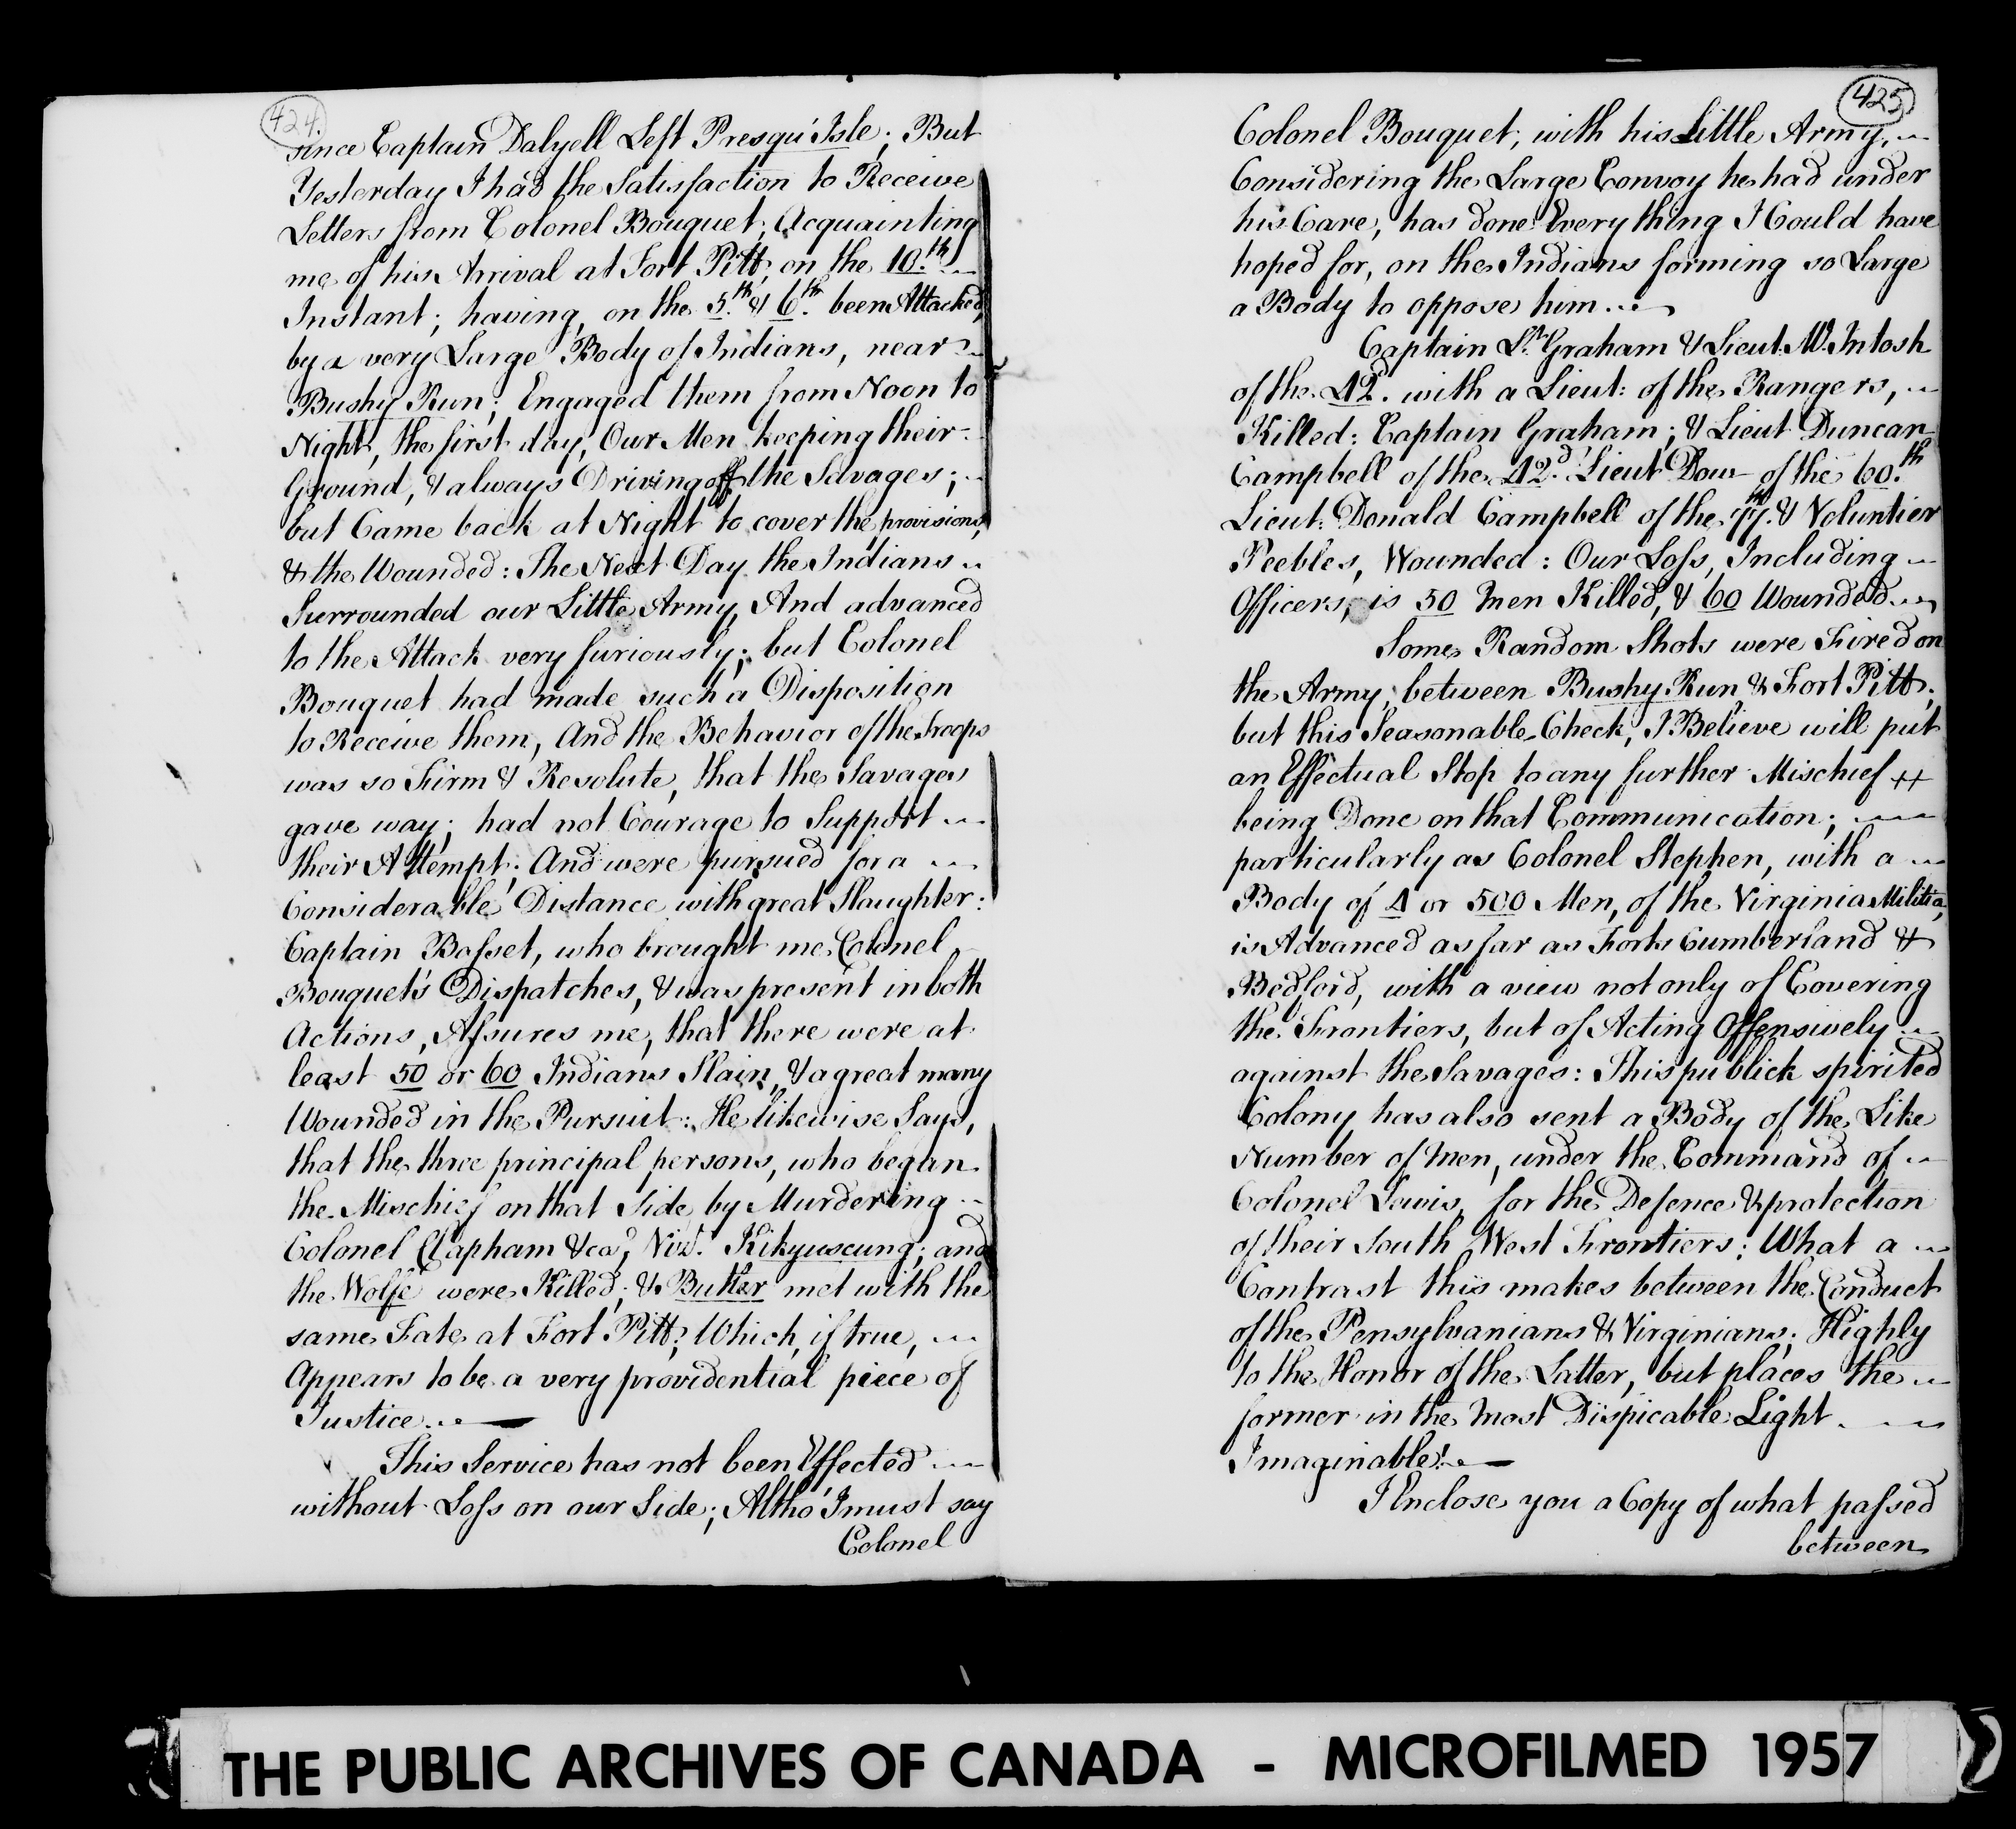 424.
since Captain Dalyell Left Presqu' Isle; But
Yesterday I had the Satisfaction to Receive
Letters from Colonel Bouquet, Acquainting
me of his Arrival at Fort Pitt, on the 10.th
Instant; having, on the 5.th & 6.th been Attacked,
by a very Large Body of Indians, near
Bushy Run; Engaged them from Noon to
Night, the first day, Our Men keeping their
Ground, & always Driving off the Savages;
but Came back at Night to cover the provisions,
& the Wounded: The Next Day the Indians
Surrounded our Little Army, And advanced
to the Attack very furiously; but Colonel
Bouquet had made such a Disposition
to Receive them, And the Behavior of the Troops
was so Firm & Resolute, that the Savages
gave way; had not Courage to Support
their Attempt; And were pursued for a
Considerable Distance with great Slaughter:
Captain Basset, who brought me Colonel
Bouquet's Dispatches, & was present in both
Actions, Assures me, that there were at
least 50 or 60 Indians Slain, & a great many
Wounded in the Pursuit: He likewise Says,
that the three principal persons, who began
the Mischief on that Side by Murdering
Colonel Clapham &ca., Vizt. Kikyuscung; and
the Wolfe were Killed; & Butler met with the
same Fate at Fort Pitt; Which, if true,
Appears to be a very providential piece of
Justice.
This Service has not been Effected
without Loss on our Side; Altho' I must say
Colonel
425
Colonel Bouquet, with his Little Army,
Considering the Large Convoy he had under
his Care, has done Every thing I Could have
hoped for, on the Indians forming so Large
a Body to oppose him.
Captain Lt. Graham & Lieut. McIntosh
of the 42d. with a Lieut: of the Rangers,
Killed: Captain Graham; & Lieut Duncan
Campbell of the 42d. Lieut Dow of the 60.th
Lieut: Donald Campbell of the 77th. & Voluntier
Peebles, Wounded: Our Loss, Including
Officers, is 50 Men Killed, & 60 Wounded.
Some Random Shots were Fired on
the Army, between Bushy Run & Fort Pitt;
but this Seasonable Check, I Believe will put
an Effectual Stop to any further Mischief
being Done on that Communication;
particularly as Colonel Stephen, with a
Body of 4 or 500 Men, of the Virginia Militia,
is Advanced as far as Forts Cumberland &
Bedford, with a view not only of Covering
the Frontiers, but of Acting Offensively
against the Savages: This publick spirited
Colony has also sent a Body of the Like
Number of Men, under the Command of
Colonel Lewis, for the Defence & protection
of their South West Frontiers; What a
Contrast this makes between the Conduct
of the Pensylvanians & Virginians; Highly
to the Honor of the Latter, but places the
former in the Most Dispicable Light
Imaginable!
I Enclose you a Copy of what passed
between
THE PUBLIC ARCHIVES OF CANADA - MICROFILMED 1957